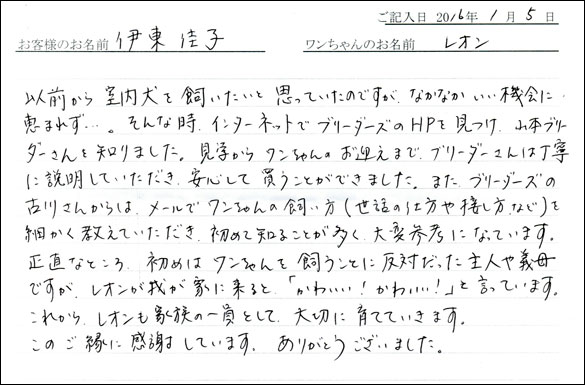 ご記入日 2016年 1月 5日
お客様のお名前 伊東佳子 ワンちゃんのお名前 レオン
以前から室内犬を飼いたいと思っていたのですが、なかなかいい機会に
恵まれず…。そんな時、インターネットでブリーダーズのHPを見つけ、山本ブリー
ダーさんを知りました。見学からワンちゃんのお迎えまで、ブリーダーさんは丁寧
に説明していただき、安心して買うことができました。また、ブリーダーズの
古川さんからは、メールでワンちゃんの飼い方(世話の仕方や接し方など)を
細かく教えていただき、初めて知ることが多く、大変参考になっています。
正直なところ、初めはワンちゃんを飼うことに反対だった主人や義母
ですが、レオンが我が家に来ると、「かわいい!かわいい!」と言っています。
これから、レオンも家族の一員として、大切に育てていきます。
このご縁に感謝しています。ありがとうございました。